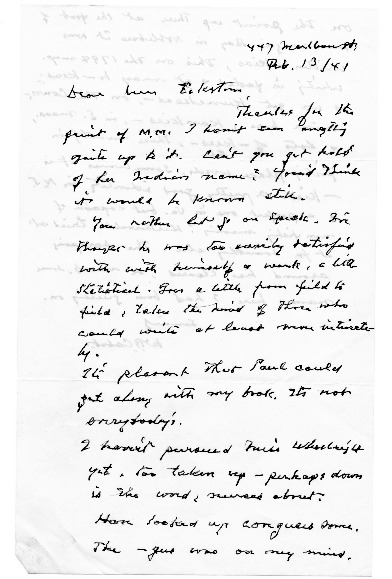 447 Marlboro St.
Feb. 13/41
Dear Miss Eckstorm,
Thanks for the
print of M.M. I havn't seen anything
quite up to it. Can't you get hold
of her Indian name? You'd think
it would be known still.
You rather let go on Speck. I've
thought he was too easily satisfied
with himself & work, a little
statistical. Goes a little from field to
field, takes the mind of those who
could write at least more intimate
ly.
It's pleasant that Paul could
get along with my book. It's not
everybody's.
I havn't pursued Miss Wheelwright
yet. Too taken up — perhaps down
is the word, nurses about.
Have looked up some.
The — was on my mind.